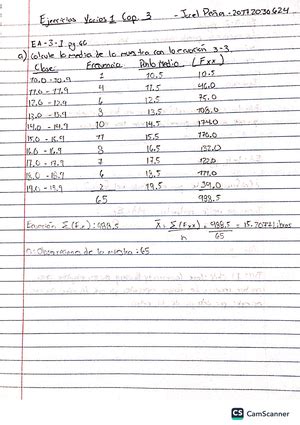 Ejercicios Varios 1 Cap. 3 - Joel Peña - 20172030624
EA-3-1 pg.66
a) Calcule la media de la muestra con la ecuación 3-3.
Clase Frecuencia Punto Medio (Fxx)
10.0 - 10.9 1 10.5 10.5
11.0 - 11.9 4 11.5 46.0
12.0 - 12.9 6 12.5 75.0
13.0 - 13.9 8 13.5 108.0
14.0 - 14.9 12 14.5 174.0
15.0 - 15.9 11 15.5 170.0
16.0 - 16.9 8 16.5 132.0
17.0 - 17.9 7 17.5 122.0
18.0 - 18.9 6 18.5 111.0
19.0 - 19.9 2 19.5 39.0
65 988.5
Ecuación Σ(Fx): 988.5 x̄ = Σ(Fxx) = 988.5 = 15.2077 Litros
n 65
n: Observaciones de la muestra: 65
CS CamScanner